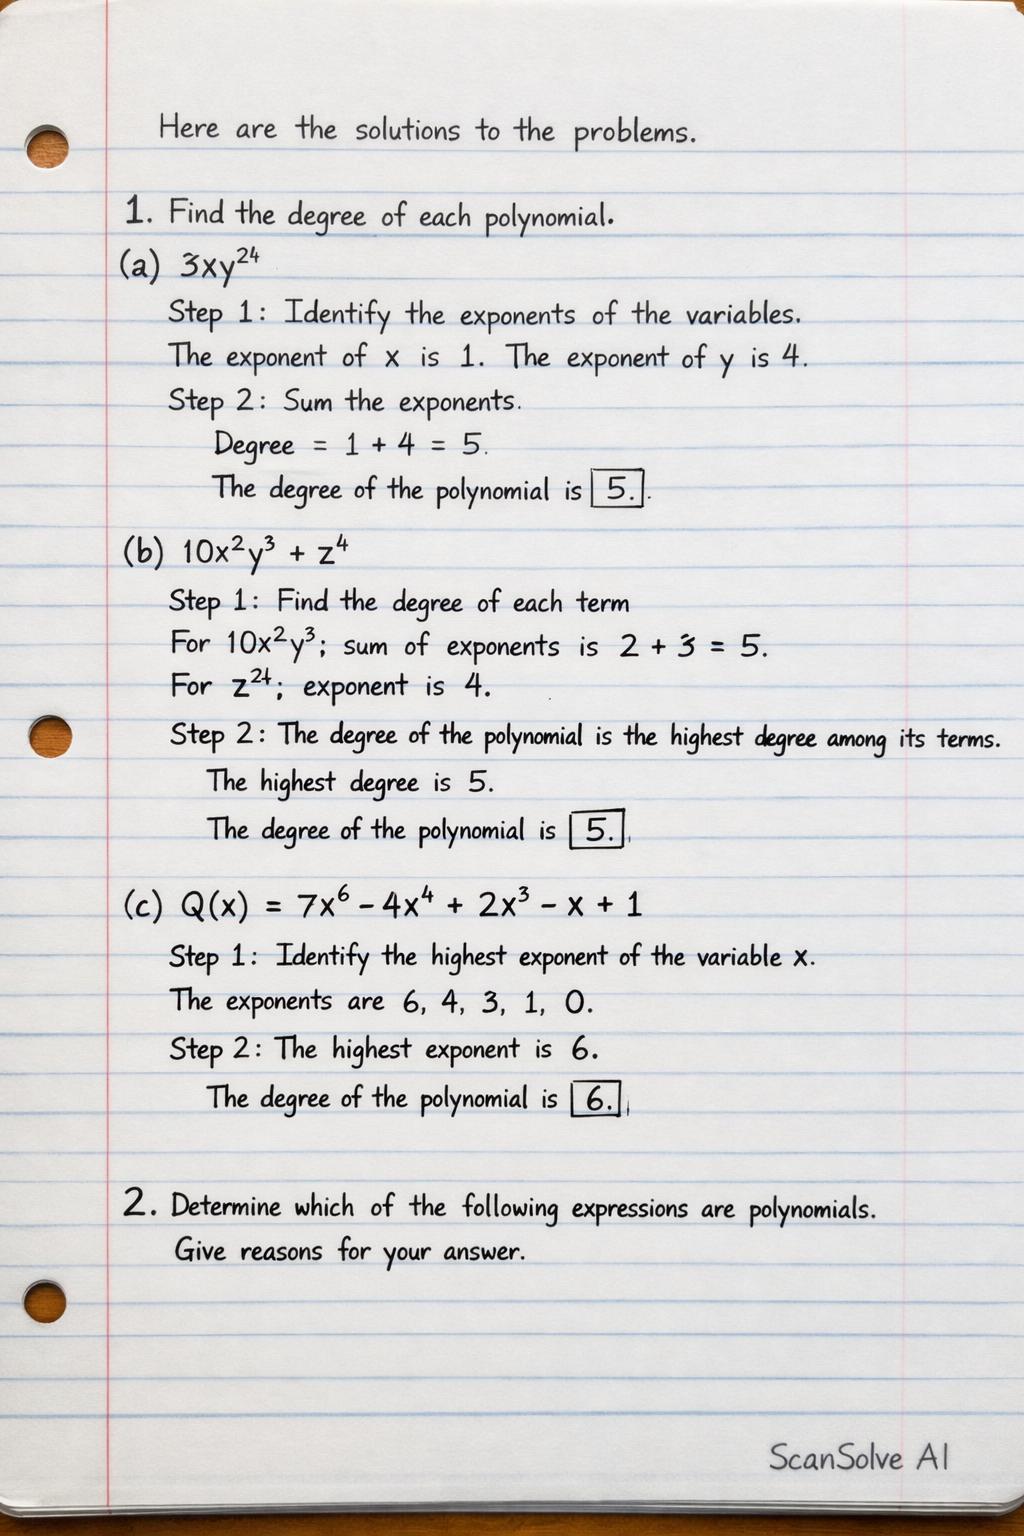 Here are the solutions to the problems.
1. Find the degree of each polynomial.
(a) 3xy²⁴
Step 1: Identify the exponents of the variables.
The exponent of x is 1. The exponent of y is 4.
Step 2: Sum the exponents.
Degree = 1 + 4 = 5.
The degree of the polynomial is 5.
(b) 10x²y³ + z⁴
Step 1: Find the degree of each term
For 10x²y³; sum of exponents is 2 + 3 = 5.
For z²⁴; exponent is 4.
Step 2: The degree of the polynomial is the highest degree among its terms.
The highest degree is 5.
The degree of the polynomial is 5.
(c) Q(x) = 7x⁶ - 4x⁴ + 2x³ - x + 1
Step 1: Identify the highest exponent of the variable x.
The exponents are 6, 4, 3, 1, 0.
Step 2: The highest exponent is 6.
The degree of the polynomial is 6.
2. Determine which of the following expressions are polynomials.
Give reasons for your answer.
ScanSolve AI